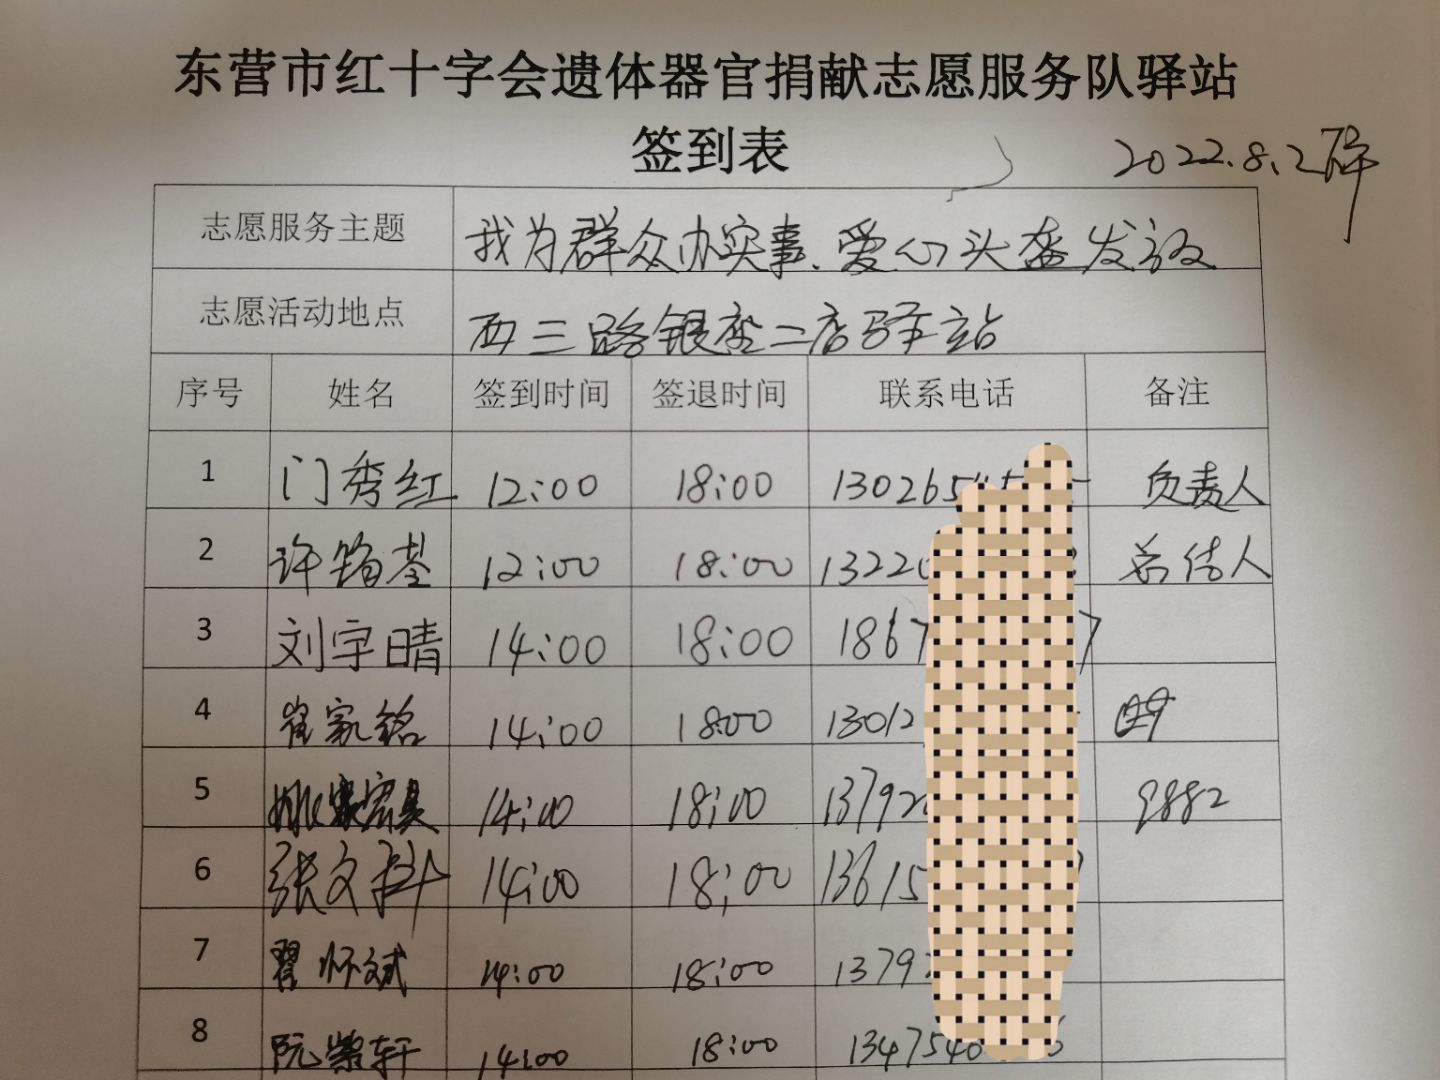 东营市红十字会遗体器官捐献志愿服务队驿站
签到表
2022.8.2下午
志愿服务主题 我为群众办实事、爱心头盔发放
志愿活动地点 西三路银座二店驿站
序号 姓名 签到时间 签退时间 联系电话 备注
1 门秀红 12:00 18:00 13026 负责人
2 许 12:00 18:00 1322 总结人
3 刘宇晴 14:00 18:00 1867 7
4 崔家铭 14:00 18:00 13012
5 14:00 18:00 1379 9882
6 张文 14:00 18:00 13615
7 翟怀斌 14:00 18:00 1379
8 阮紫轩 14:00 18:00 1347540 6